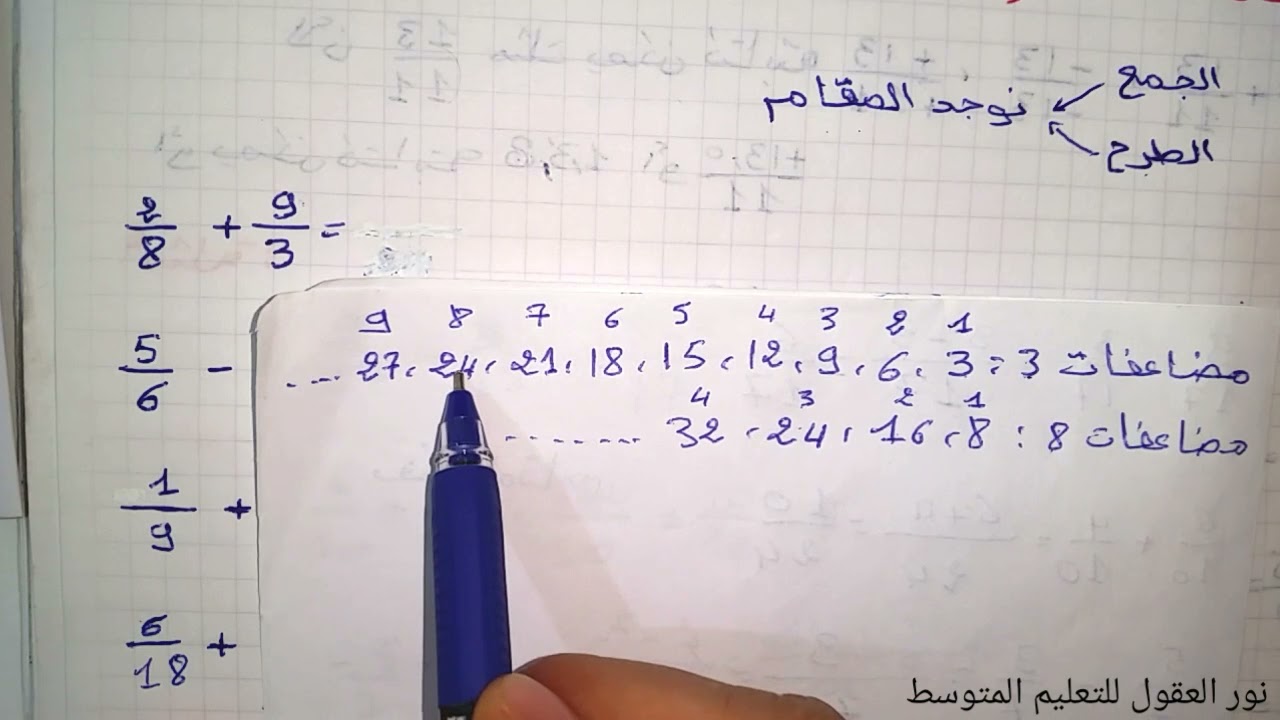 الجمع
نوجد المقام
الطرح
2/8 + 9/3 =
9 8 7 6 5 4 3 2 1
مضاعفات 3 : 3 ، 6 ، 9 ، 12 ، 15 ، 18 ، 21 ، 24 ، 27 ....
5/6 -
4 3 2 1
مضاعفات 8 : 8 ، 16 ، 24 ، 32 ........
1/9 +
6/18 +
نور العقول للتعليم المتوسط